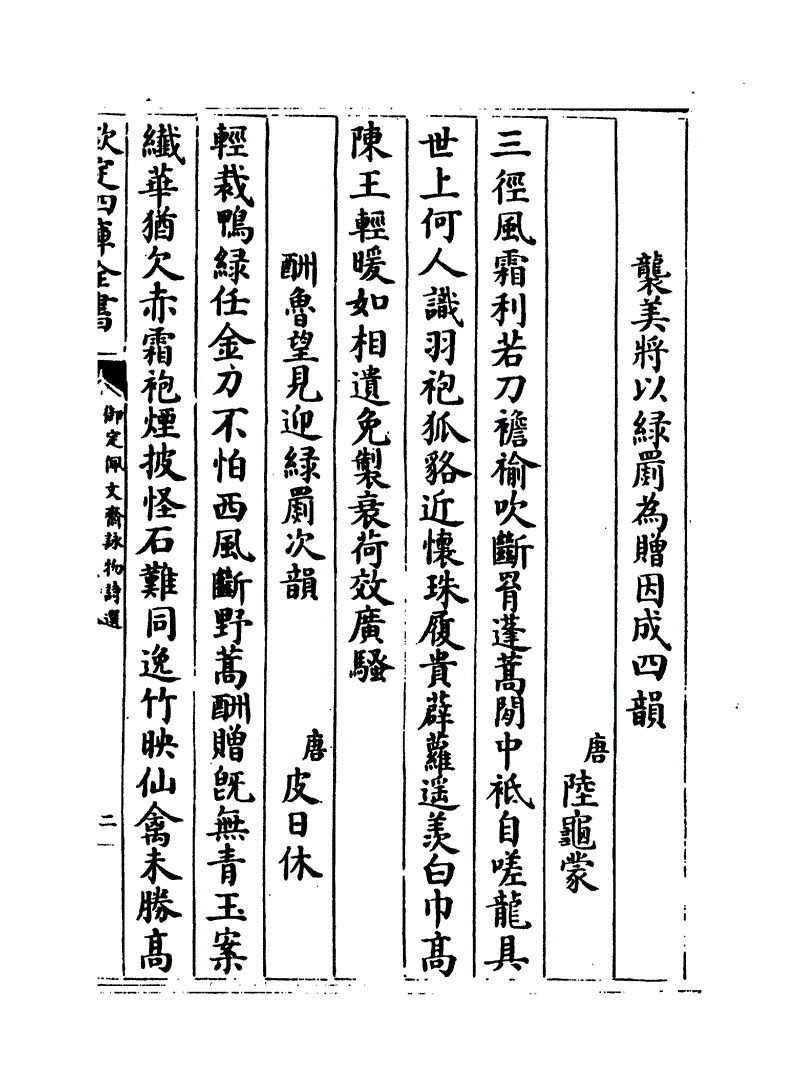 襲美將以緑罽為贈因成四韻
唐陸龜蒙
三徑風霜利若刀襜褕吹斷罥蓬蒿閑中袛自嗟龍具
世上何人識羽袍狐貉近懷珠履貴薜蘿遥羨白巾髙
陳王輕暖如相遺免製衰荷效廣騷
酬魯望見迎緑罽次韻
唐皮日休
輕裁鴨緑任金刀不怕西風斷野蒿酬贈旣無青玉案
纎華猶欠赤霜袍煙披怪石難同逸竹映仙禽未勝髙
欽定四庫全書
御定佩文齋詠物詩選
二